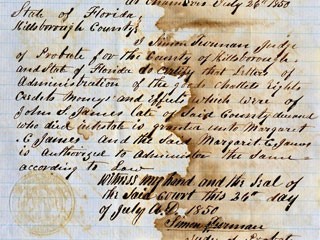 At Chambers July 24th 1850
State of Florida
Hillsborough County
I Simon Turman Judge
of Probate for the County of Hillsborough
and State of Florida do certify that Letters of
Administration of the goods Chattels Rights
Credits Moneys and Effects which were of
John S. James late of Said County deceased
who died intestate is granted unto Margaret
C. James And the Said Margaret C. James
is Authorized to Administer the Same
according to Law
Witness my hand and the Seal of
the Said Court this 24th day
of July A.D. 1850
Simon Turman
Judge of Probate